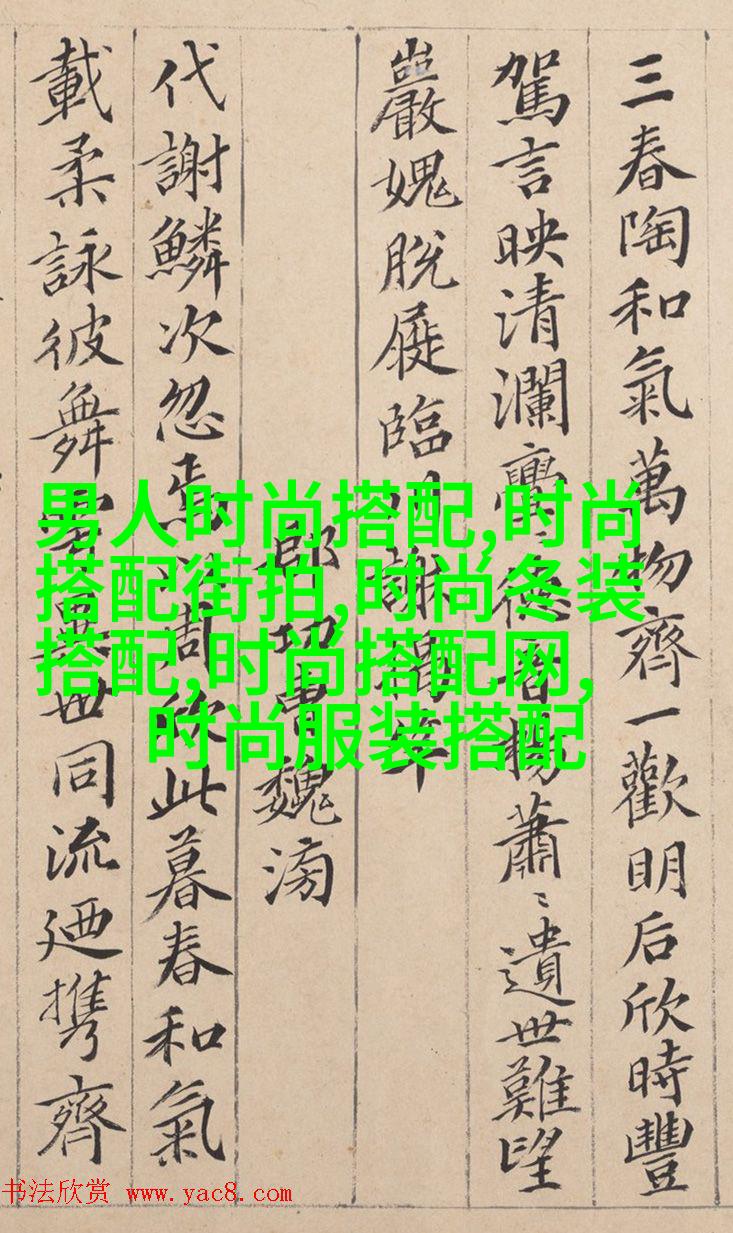 三春陶和氣萬物齊一歡明后欣時豐
駕言映清瀾亹〻德音暢蕭〻遺世難望
巖愧脫屣臨川謝揭竿
郡功曹魏滂
代謝鱗次忽焉以周欣此暮春和氣
載柔詠彼舞雩異世同流廼携齊
男人时尚搭配,时尚
搭配街拍,时尚冬装
搭配,时尚搭配网,
时尚服装搭配
书法欣赏 www.yac8.com